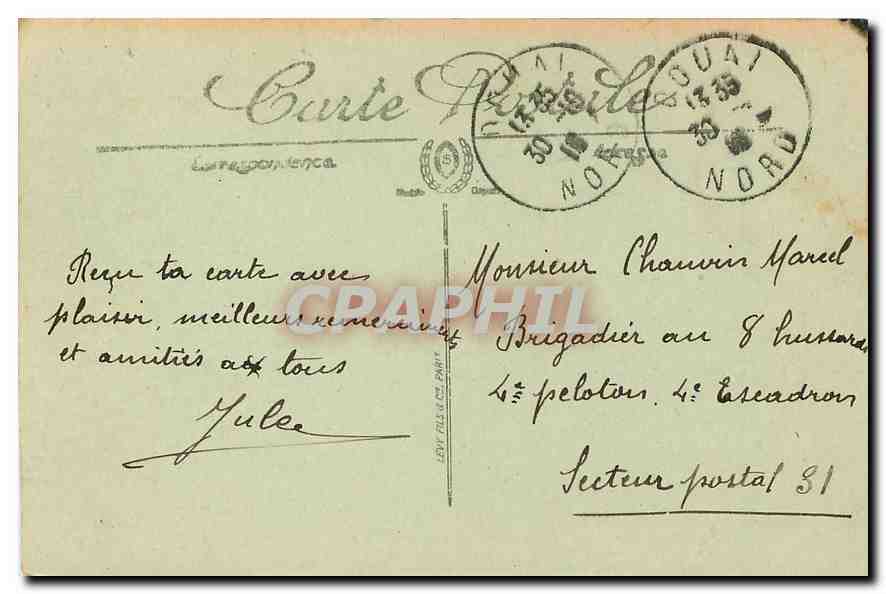 Carte Postale
Correspondance
Adresse
DOUAI
13 35
30
NORD
DOUAI
13 35
30
NORD
Reçu ta carte avec
plaisir, meilleurs remerciments
et amitiés a tous
Jules
LEVY FILS & Cie, PARIS
Monsieur Chauvin Marcel
Brigadier au 8 hussards
4e peloton, 4e Escadron
Secteur postal 31
CRAPHIL